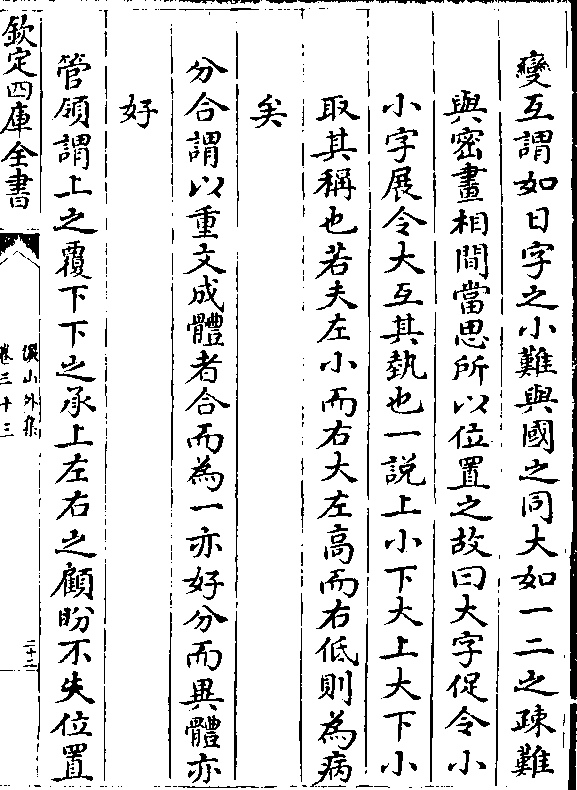 變互謂如日字之小難與國之同大如一二之疎難
與密畫相間當思所以位置之故曰大字促令小
小字展令大互其埶也一説上小下大上大下小
取其稱也若夫左小而右大左高而右低則為病
矣
分合謂以重文成體者合而為一亦好分而異體亦
好
管領謂上之覆下下之承上左右之顧盼不失位置
欽定四庫全書
儼山外集
卷三十三
二十二